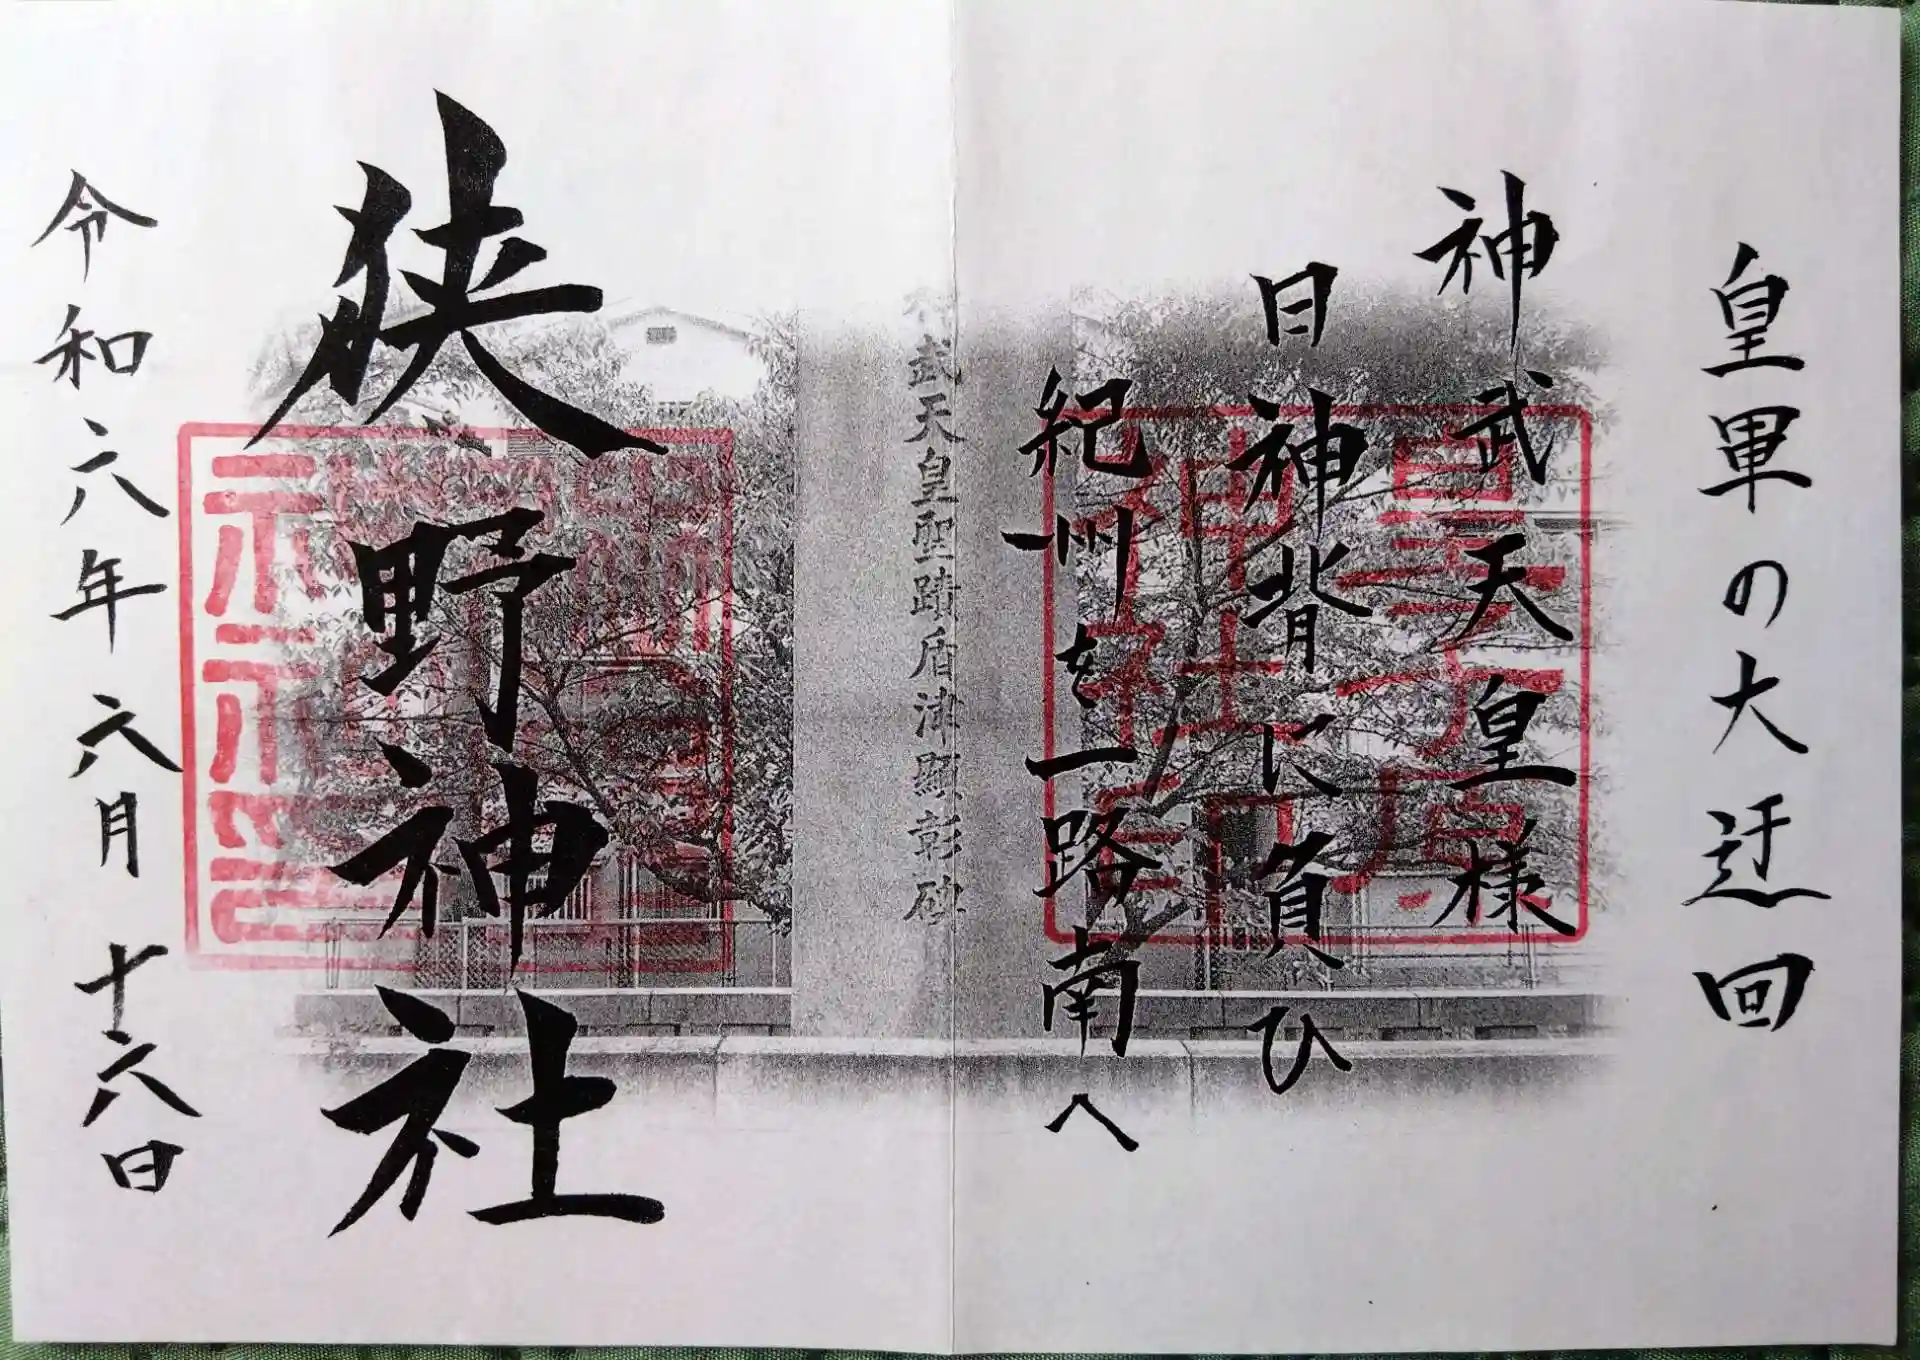 皇軍の大迂回
神武天皇様
日神背に負ひ
紀州を一路南へ
神武天皇聖蹟盾津顕彰碑
狭野神社
令和六年六月十六日
皇子原
神社印